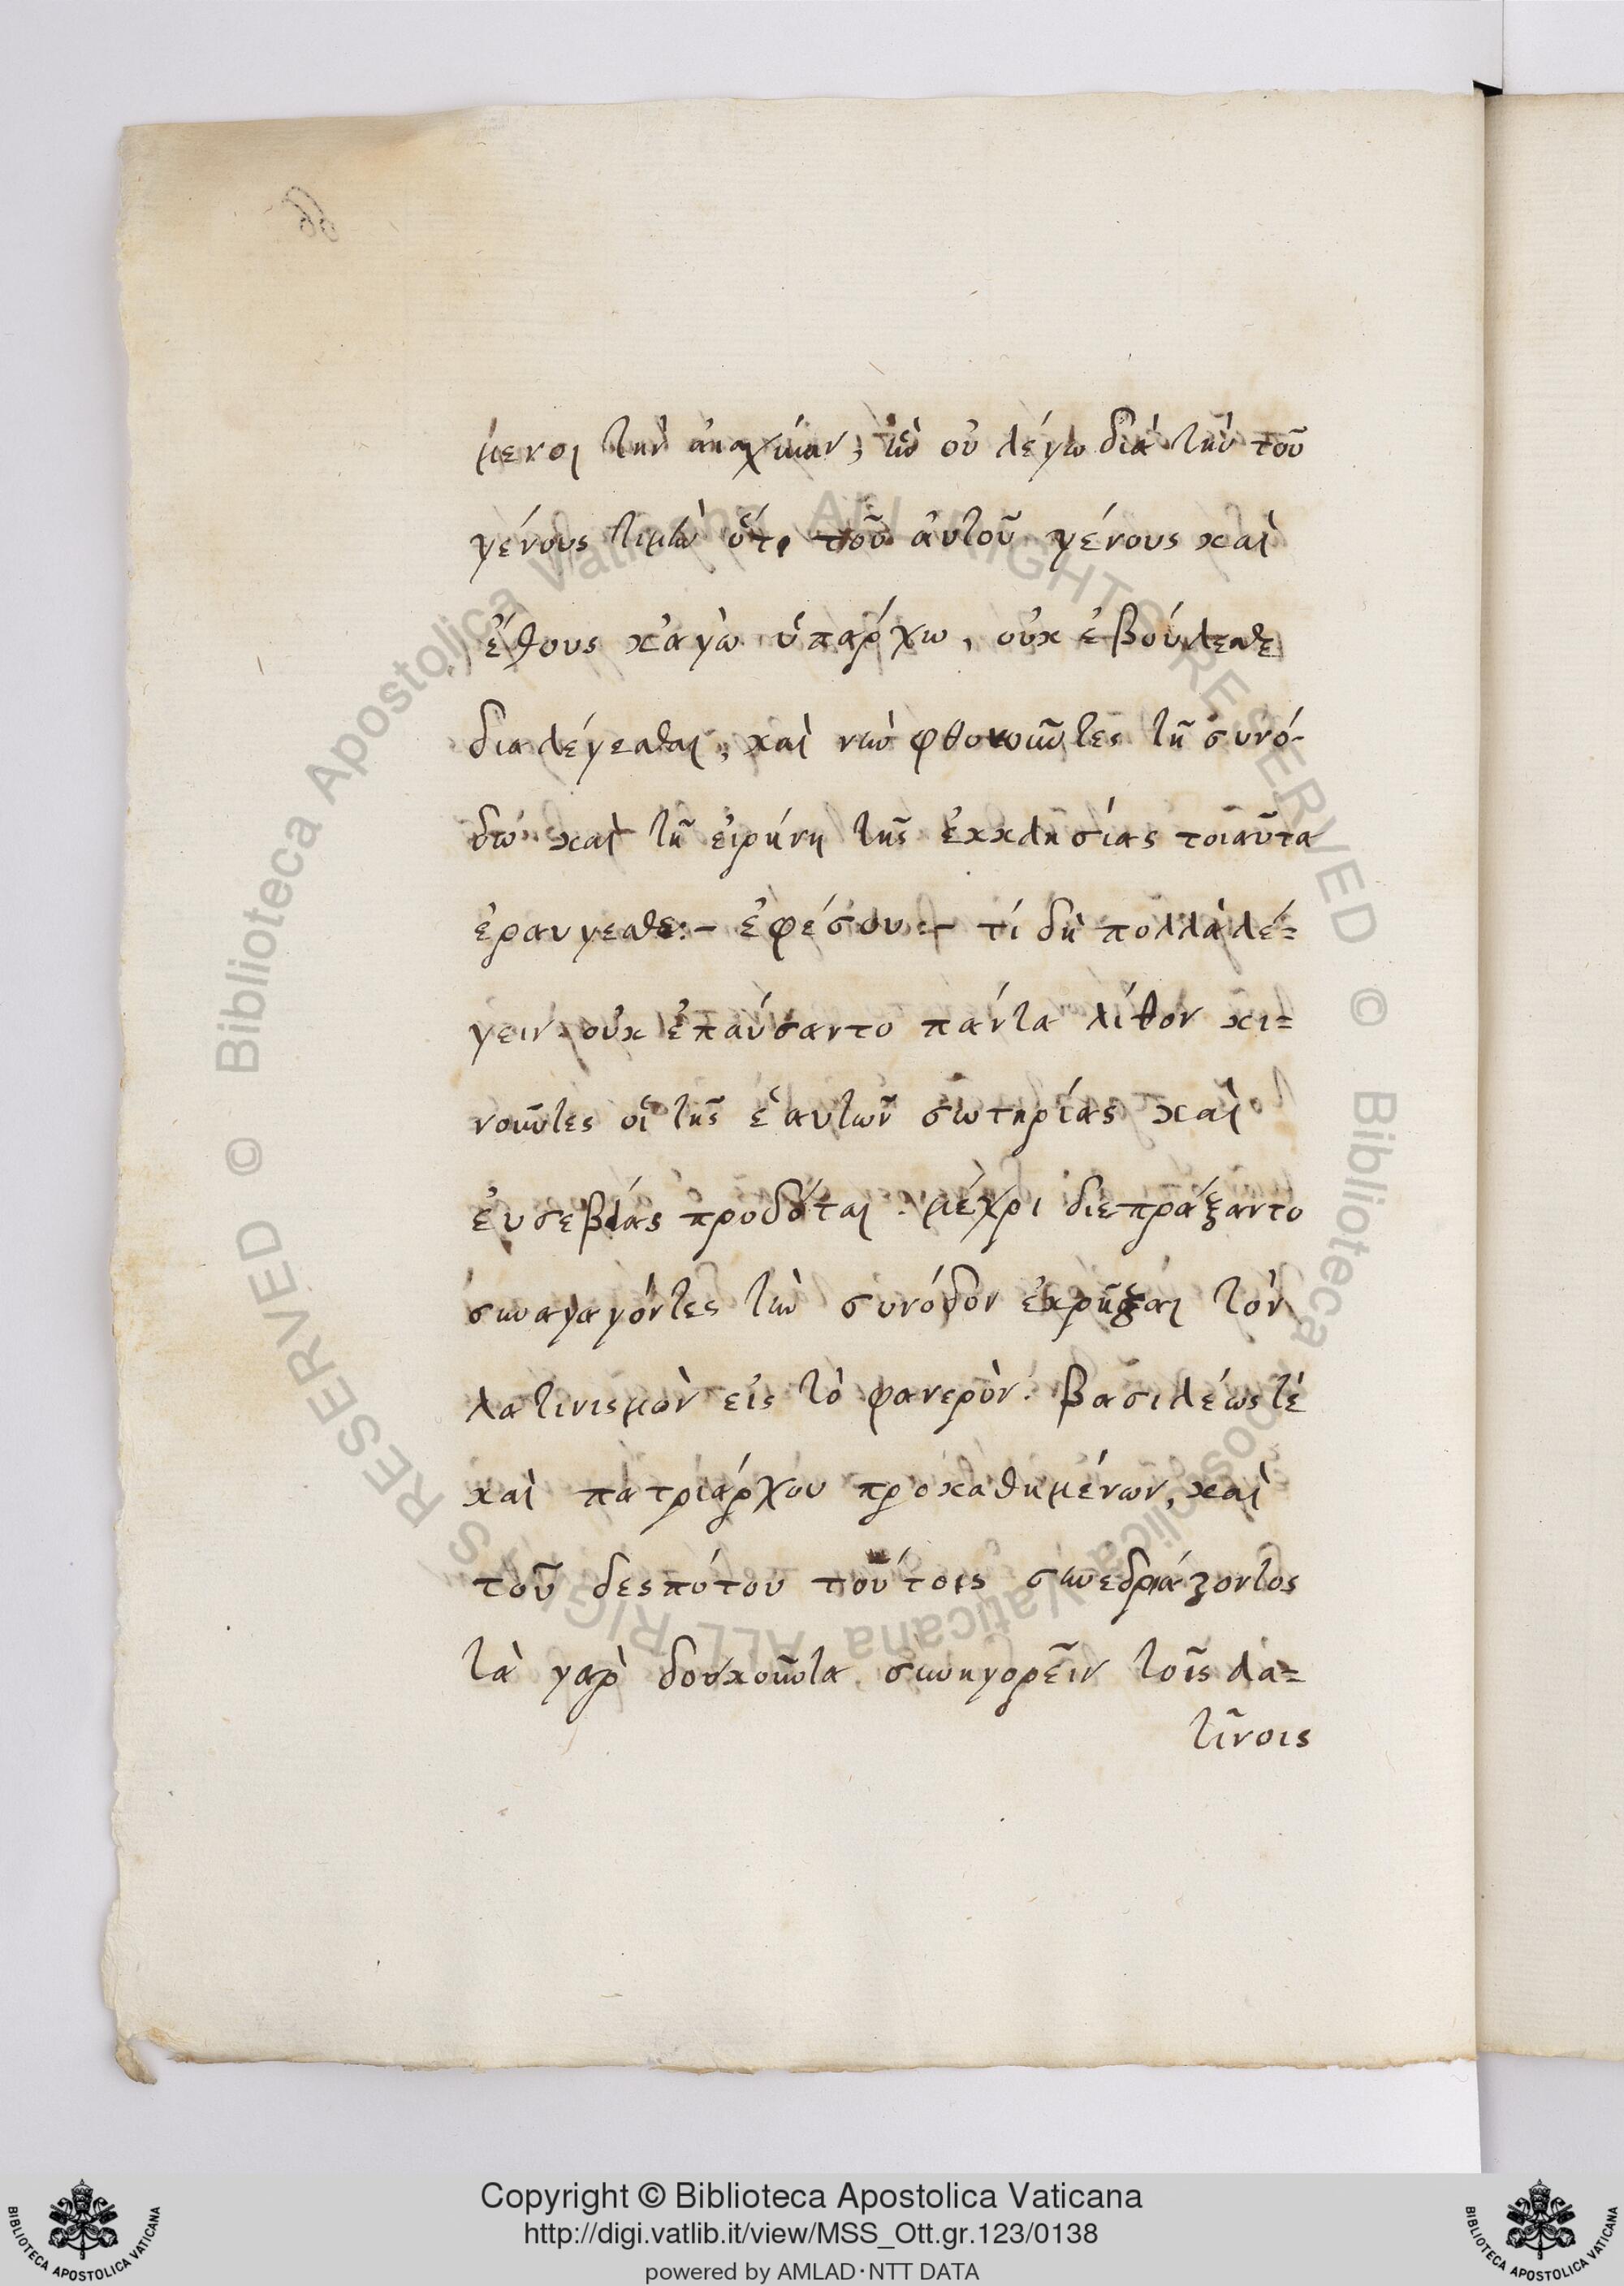 μενοι τὴν ἀισχύναν, ἣν οὐ λέγω διὰ τὴν τοῦ
γένους τιμὴν ὅτι τοῦ ἀυτοῦ γένους καὶ
ἔθους κἀγὼ ὑπάρχω, οὐκ ἐβούλεσθε
διαλέγεσθαι, καὶ νῦν φθονοῦντες τῇ συνό-
δω καὶ τῇ εἰρήνη τῆς ἐκκλησίας τοιαῦτα
ἐραυγεσθε:- ἐφέσου:- τί δὴ πολλὰ λέ=
γειν οὐκ ἐπαύσαντο πάντα λίθον κι=
νοῦντες οἱ τῆς ἑαυτῶν σωτηρίας καὶ
ἐυσεβίας προδόται. μέχρι διεπράξαντο
συναγαγόντες τὴν σύνοδον ἐκρῆξαι τὸν
λατινισμὸν εἰς τὸ φανερὸν. βασιλέως τέ
καὶ πατριάρχου προκαθημένων, καὶ
τοῦ δεσπότου τούτοις συνεδριάζοντος
τὰ γὰρ δοκοῦντα συνηγορεῖν τοῖς λα=
τῖνοις
Copyright © Biblioteca Apostolica Vaticana
http://digi.vatlib.it/view/MSS_Ott.gr.123/0138
powered by AMLAD·NTT DATA
BIBLIOTECA APOSTOLICA VATICANA
BIBLIOTECA APOSTOLICA VATICANA
Biblioteca Apostolica Vaticana ALL RIGHTS RESERVED ©
Biblioteca Apostolica Vaticana ALL RIGHTS RESERVED ©